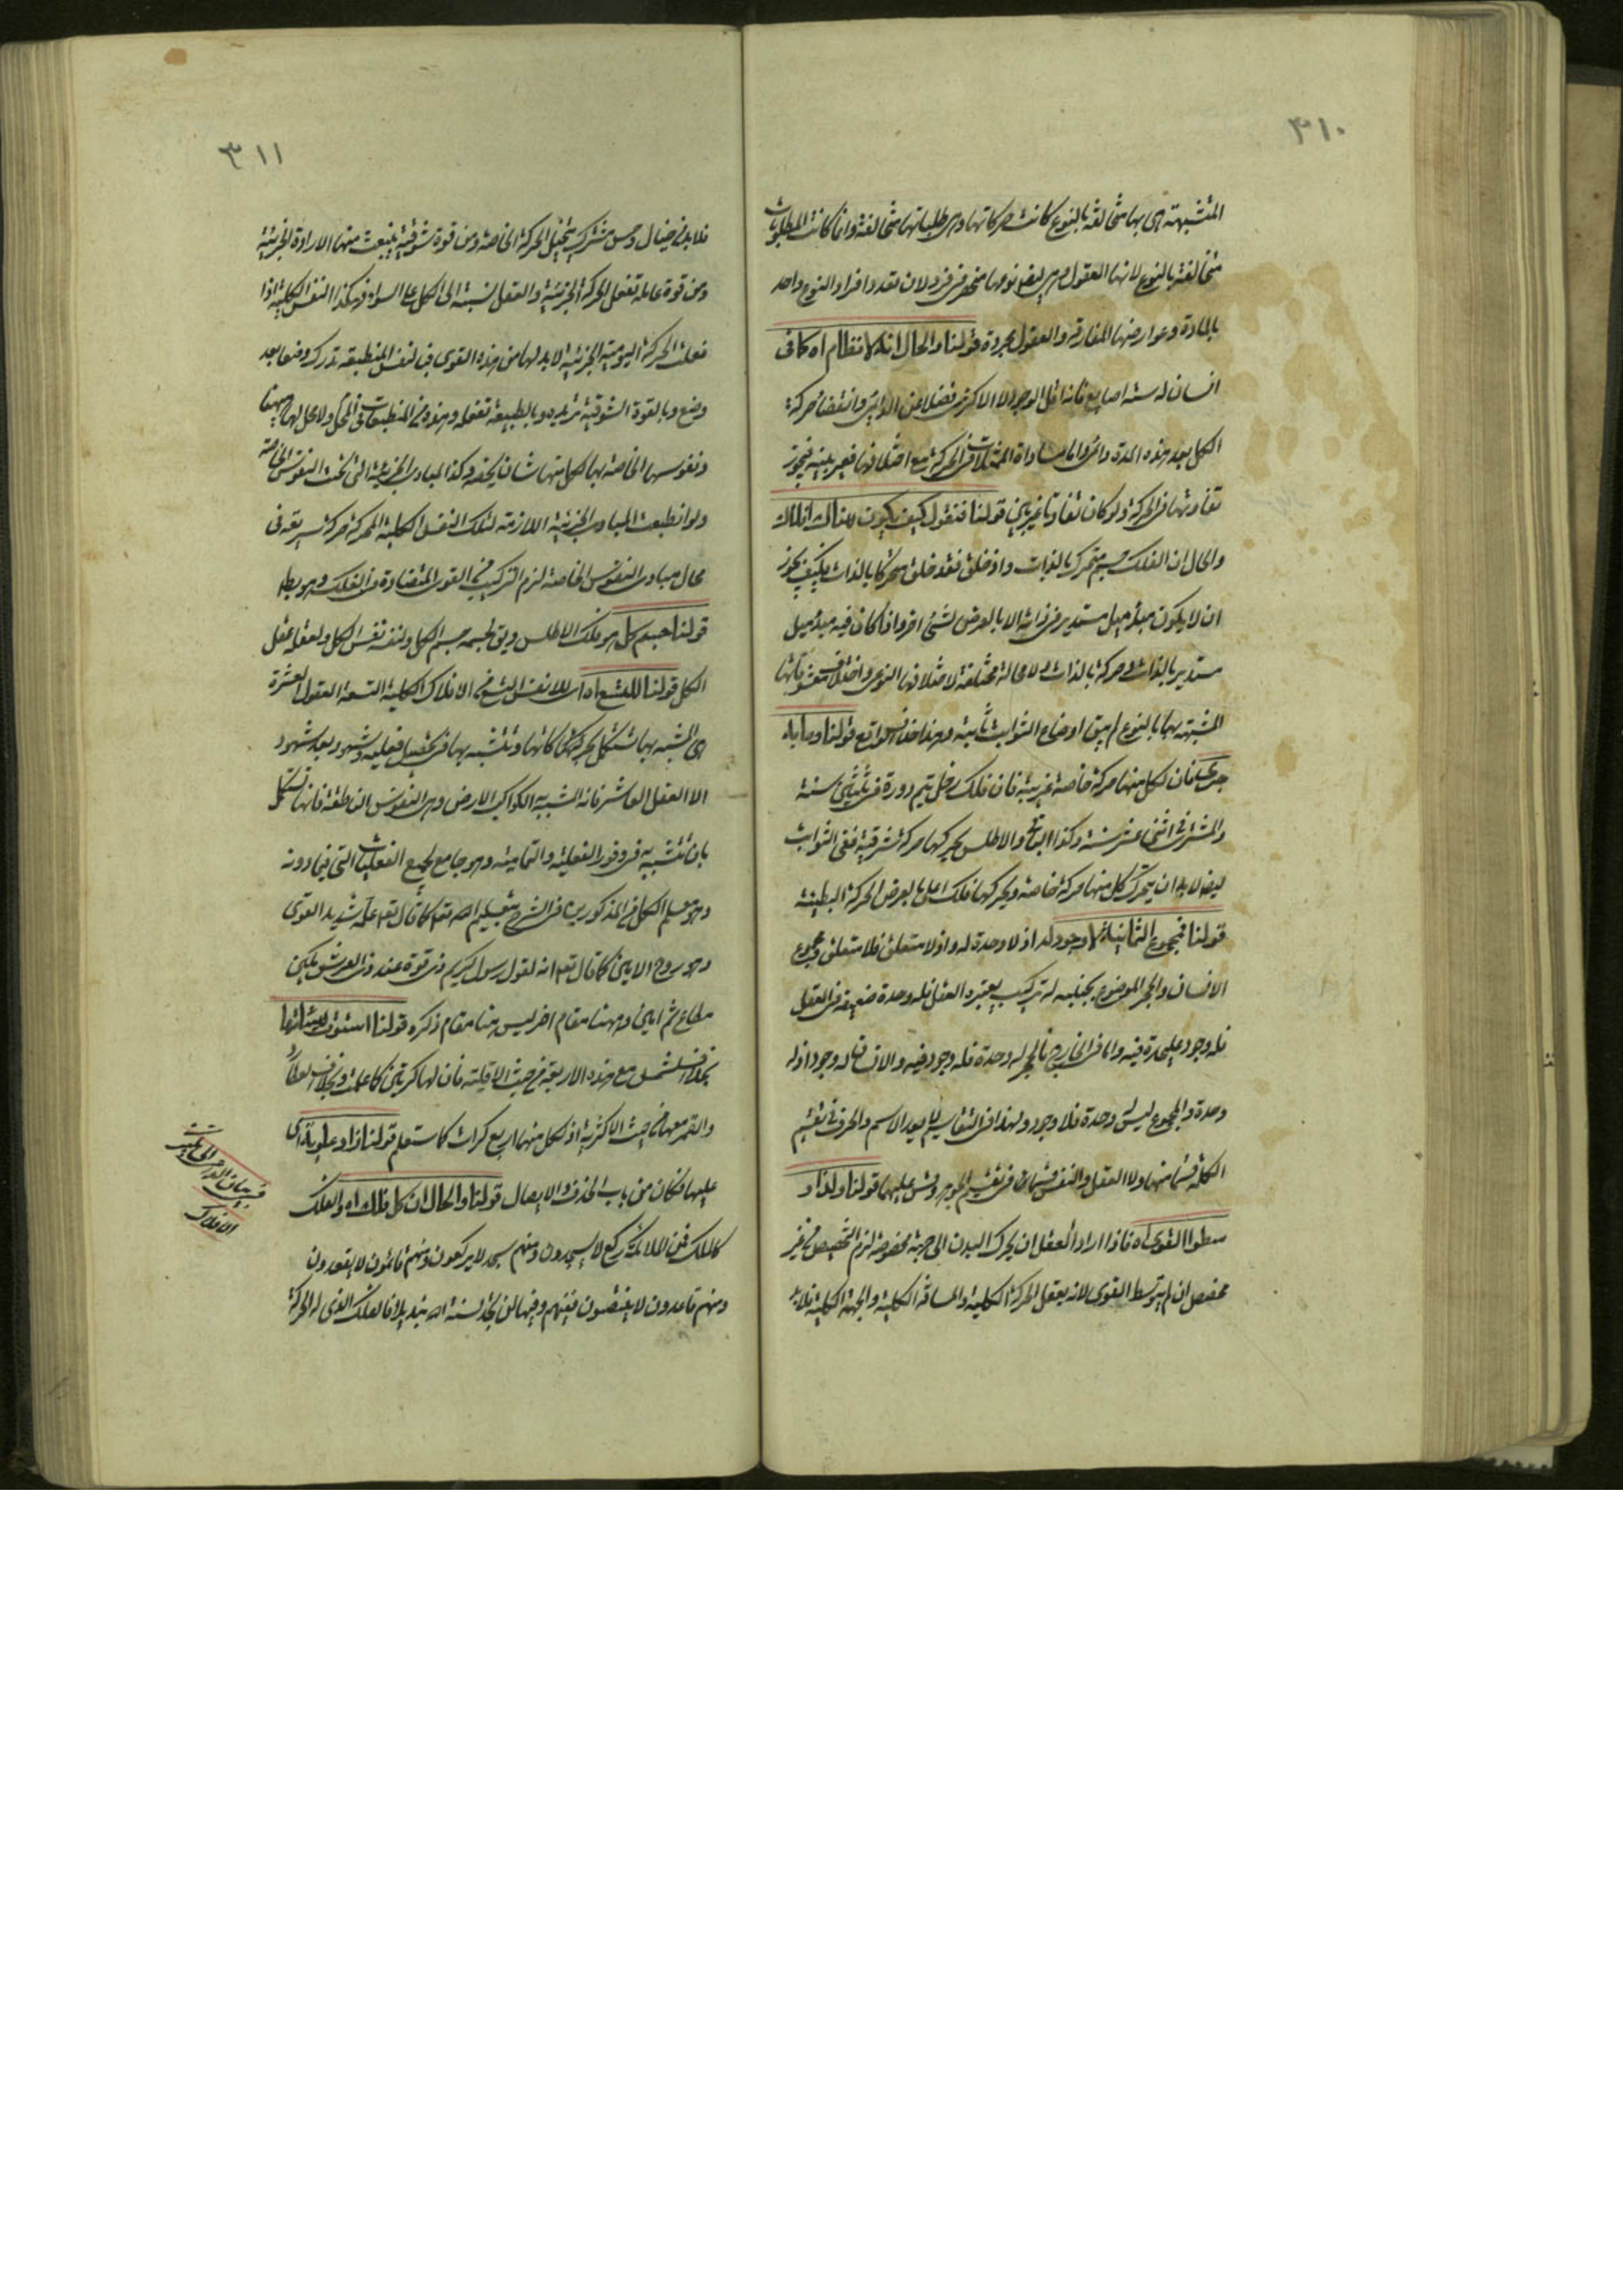 ٣١٠
المتشبهة هى بها متخالفة بالنوع كانت حركاتها وهى طلباتها متخالفة وانما كانت المطلوبات
متخالفة بالنوع لانها العقول وهى ايضا نوعها منحصر فى فرد لان تعدد افراد النوع واحد
بالمادة وعوارضها المفارقة والعقول مجردة قولنا والحال انه لا نظام اه كما فى
انسان له ستة اصابع فانه اقل الوجود لا الاكثرى فضلا عن الدائمى وانقضاء حركة
الكل بعد هذه المدة دائمى واما مساواة الممثلات فى الحركة مع اختلافها فغير بينة فيجوز
تفاوتها فى الحركة ولو كان تفاوتا غير بين قولنا فنقول كيف يكون هناك افلاك
والحال ان الفلك جسم متحرك بالذات واذ خلق فقد خلق متحركا بالذات فكيف يجوز
ان لا يكون مبدء ميل مستدير فى ذاته الا بالعرض لشىء اخر واذا كان فيه مبدء ميل
مستدير بالذات وحركة بالذات ولا محالة مختلفة لاختلافها النوعى واختلاف معشوقاتها
المشبهة بها بالنوع لم يبق اوضاع الثوابت ثابتة وهذا خلاف الواقع قولنا وما اباه
جرى فان لكل منها حركة خاصة غربية فان فلك زحل يتم دورة فى ثلثين سنة
والمشترى فى اثنى عشر سنة وكذا البواقى والاطلس يحركها حركة شرقية ففى الثوابت
ايضا لا بد ان يتحرك كل منها حركة خاصة ويحركها فلك اعلى بالعرض الحركة البطيئة
قولنا فمجموع الثمانية لا وجود له اذ لا وحدة له واذ لا متعلق فلا متعلق ومجموع
الانسان والحجر الموضوع بجنبه له تركيب يعتبره العقل فله وحدة ضعيفة فى العقل
فله وجود عليحدة فيه واما فى الخارج فالحجر له وحدة فله وجود فيه والانسان له وجود اذ له
وحدة والمجموع ليس له وحدة فلا وجود ولهذا فى التقاسيم لم يعد الاسم والحرف فى تقسيم
الكلمة قسما منها ولا العقل والنفس قسما فى تقسيم الجوهر وقس عليهما قولنا ولذا و
سطوا القوى اه فاذا اراد العقل ان يحرك البدن الى جهة مخصوصة لزم التخصيص من غير
مخصص ان لم يتوسط القوى لانه يعقل الحركة الكلية والمسافة الكلية والجهة الكلية فلا بد
٣١١
فلا بد من خيال وحس مشترك يتخيل الحركة الخاصة ومن قوة شوقية ينبعث منها الارادة الجزئية
ومن قوة عاملة تفعل الحركة الجزئية والعقل نسبته الى الكل على السواء وهكذا النفس الكلية اذا
فعلت الحركة اليومية الجزئية لا بد لها من هذه القوى فبالنفس المنطبعة تدرك وضعا بعد
وضع وبالقوة الشوقية تريده وبالطبيعة تفعله وهذه من المنطبعات فى المحل ولا محل لها هيهنا
ونفوسها الخاصة بها لكل منها شان يخصه وكذا المبادى الجزئية التى تحت النفوس الخاصة
ولو انطبعت المبادى الجزئية اللازمة لتلك النفس الكلية المحركة حركة سريعة فى
محال مبادى النفوس الخاصة لزم التركيب من القوى المتضادة فى الفلك وهو بسيط
قولنا جسم كل هو فلك الاطلس ويق لجسمه جسم الكل ولنفسه نفس الكل ولعقله عقل
الكل قولنا للتسع اه اى للانفس التسع من الافلاك الكلية التسعة العقول العشرة
هى المشبه بها تستكمل بحركاتها كانها وتتشبه بها فى تحصيل فعلية وشهود بعد شهود
الا العقل العاشر فانه الشبيه الكواكب الارض وهى النفوس الناطقة فانها تستكمل
بان تتشبه به فى وفور الفعلية والتمامية وهو جامع لجميع الفعليات التى فيما دونه
وهو معلم الكل من المذكورين فى الشرح بتعليم الله تعا كما قال تع علمه شديد القوى
وهو روح الامين كما قال تع انه لقول رسول كريم ذى قوة عند ذى العرش مكين
مطاع ثم امين وهيهنا مقام اخر ليس هنا مقام ذكره قولنا استوت هيئاتها
بخلاف الشمس مع هذه الاربعة من حيث الاقلية فان لها كرتين كما علمت وبخلاف العطارد
والقمر معها من حيث الاكثرية اذ لكل منهما اربع كرات كما ستعلم قولنا زاد علوية اى
عليها فكان من باب الحذف والايصال قولنا والحال ان كل فلك اه والفلك
كالملك فمن الملائكة ركع لا يسجدون ومنهم سجد لا يركعون ومنهم قائمون لا يقعدون
ومنهم قاعدون لا ينتصبون ففيهم وفيها لن تجد لسنة الله تبديلا فالفلك الذى له الحركة
فى بيان
الافلاك